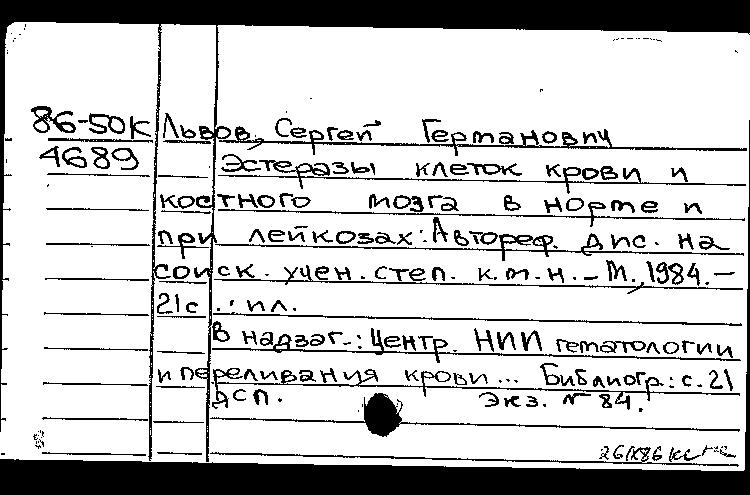 86-50К Львов, Сергей Германович
4689 Эстеразы клеток крови и
костного мозга в норме и
при лейкозах: Автореф. дис. на
соиск. учен. степ. к.м.н. – М., 1984. –
21с.: ил.
В надзаг.: Центр. НИИ гематологии
и переливания крови... Библиогр.: с. 21
ДСП. Экз. № 84.